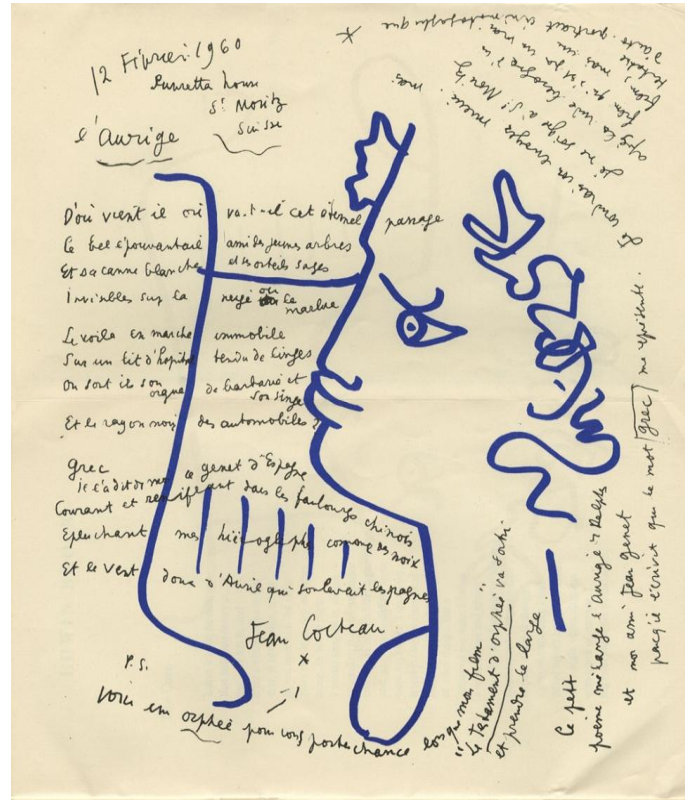 12 Février 1960
Suvretta house
St Moritz
Suisse
l'Aurige
D'où vient il où va-t-il cet éternel passage
Ce bel épouvantail ami des jeunes arbres
Et sa canne blanche et ses orteils sages
Invisibles sur la neige ou le marbre
Le voilà en marche immobile
Sur un lit d'hôpital tendu de linges
Où sort ils son orgue de barbarie et son singe
Et le rayon noir des automobiles ?
Grec
je t'ai dit donne ce genet d'Espagne
Courant et reniflant dans les faubourgs chinois
Epluchant mes hiéroglyphes comme des noix
Et le vent doux d'Avril qui soulevait les pagnes
Jean Cocteau
*
P.S.
Voici un orphée pour vous porter chance lorsque mon film
"Le testament d'orphée" va sortir
et prendre le large
Ce petit
poème mélange l'aurige de Delphes
et mon ami Jean Genet
parce qu'il écrivit que le mot grec me représente.
Je voudrais vous envoyer mieux. mais
je me soigne à St Moritz
après la rude besogne d'un
film qui n'est pas un vrai
film, mais un
d'auto-portrait cinématographique
*